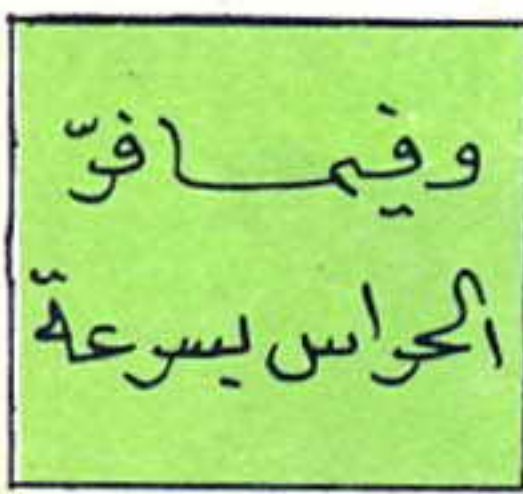 وفيما فرّ
الحراس بسرعة